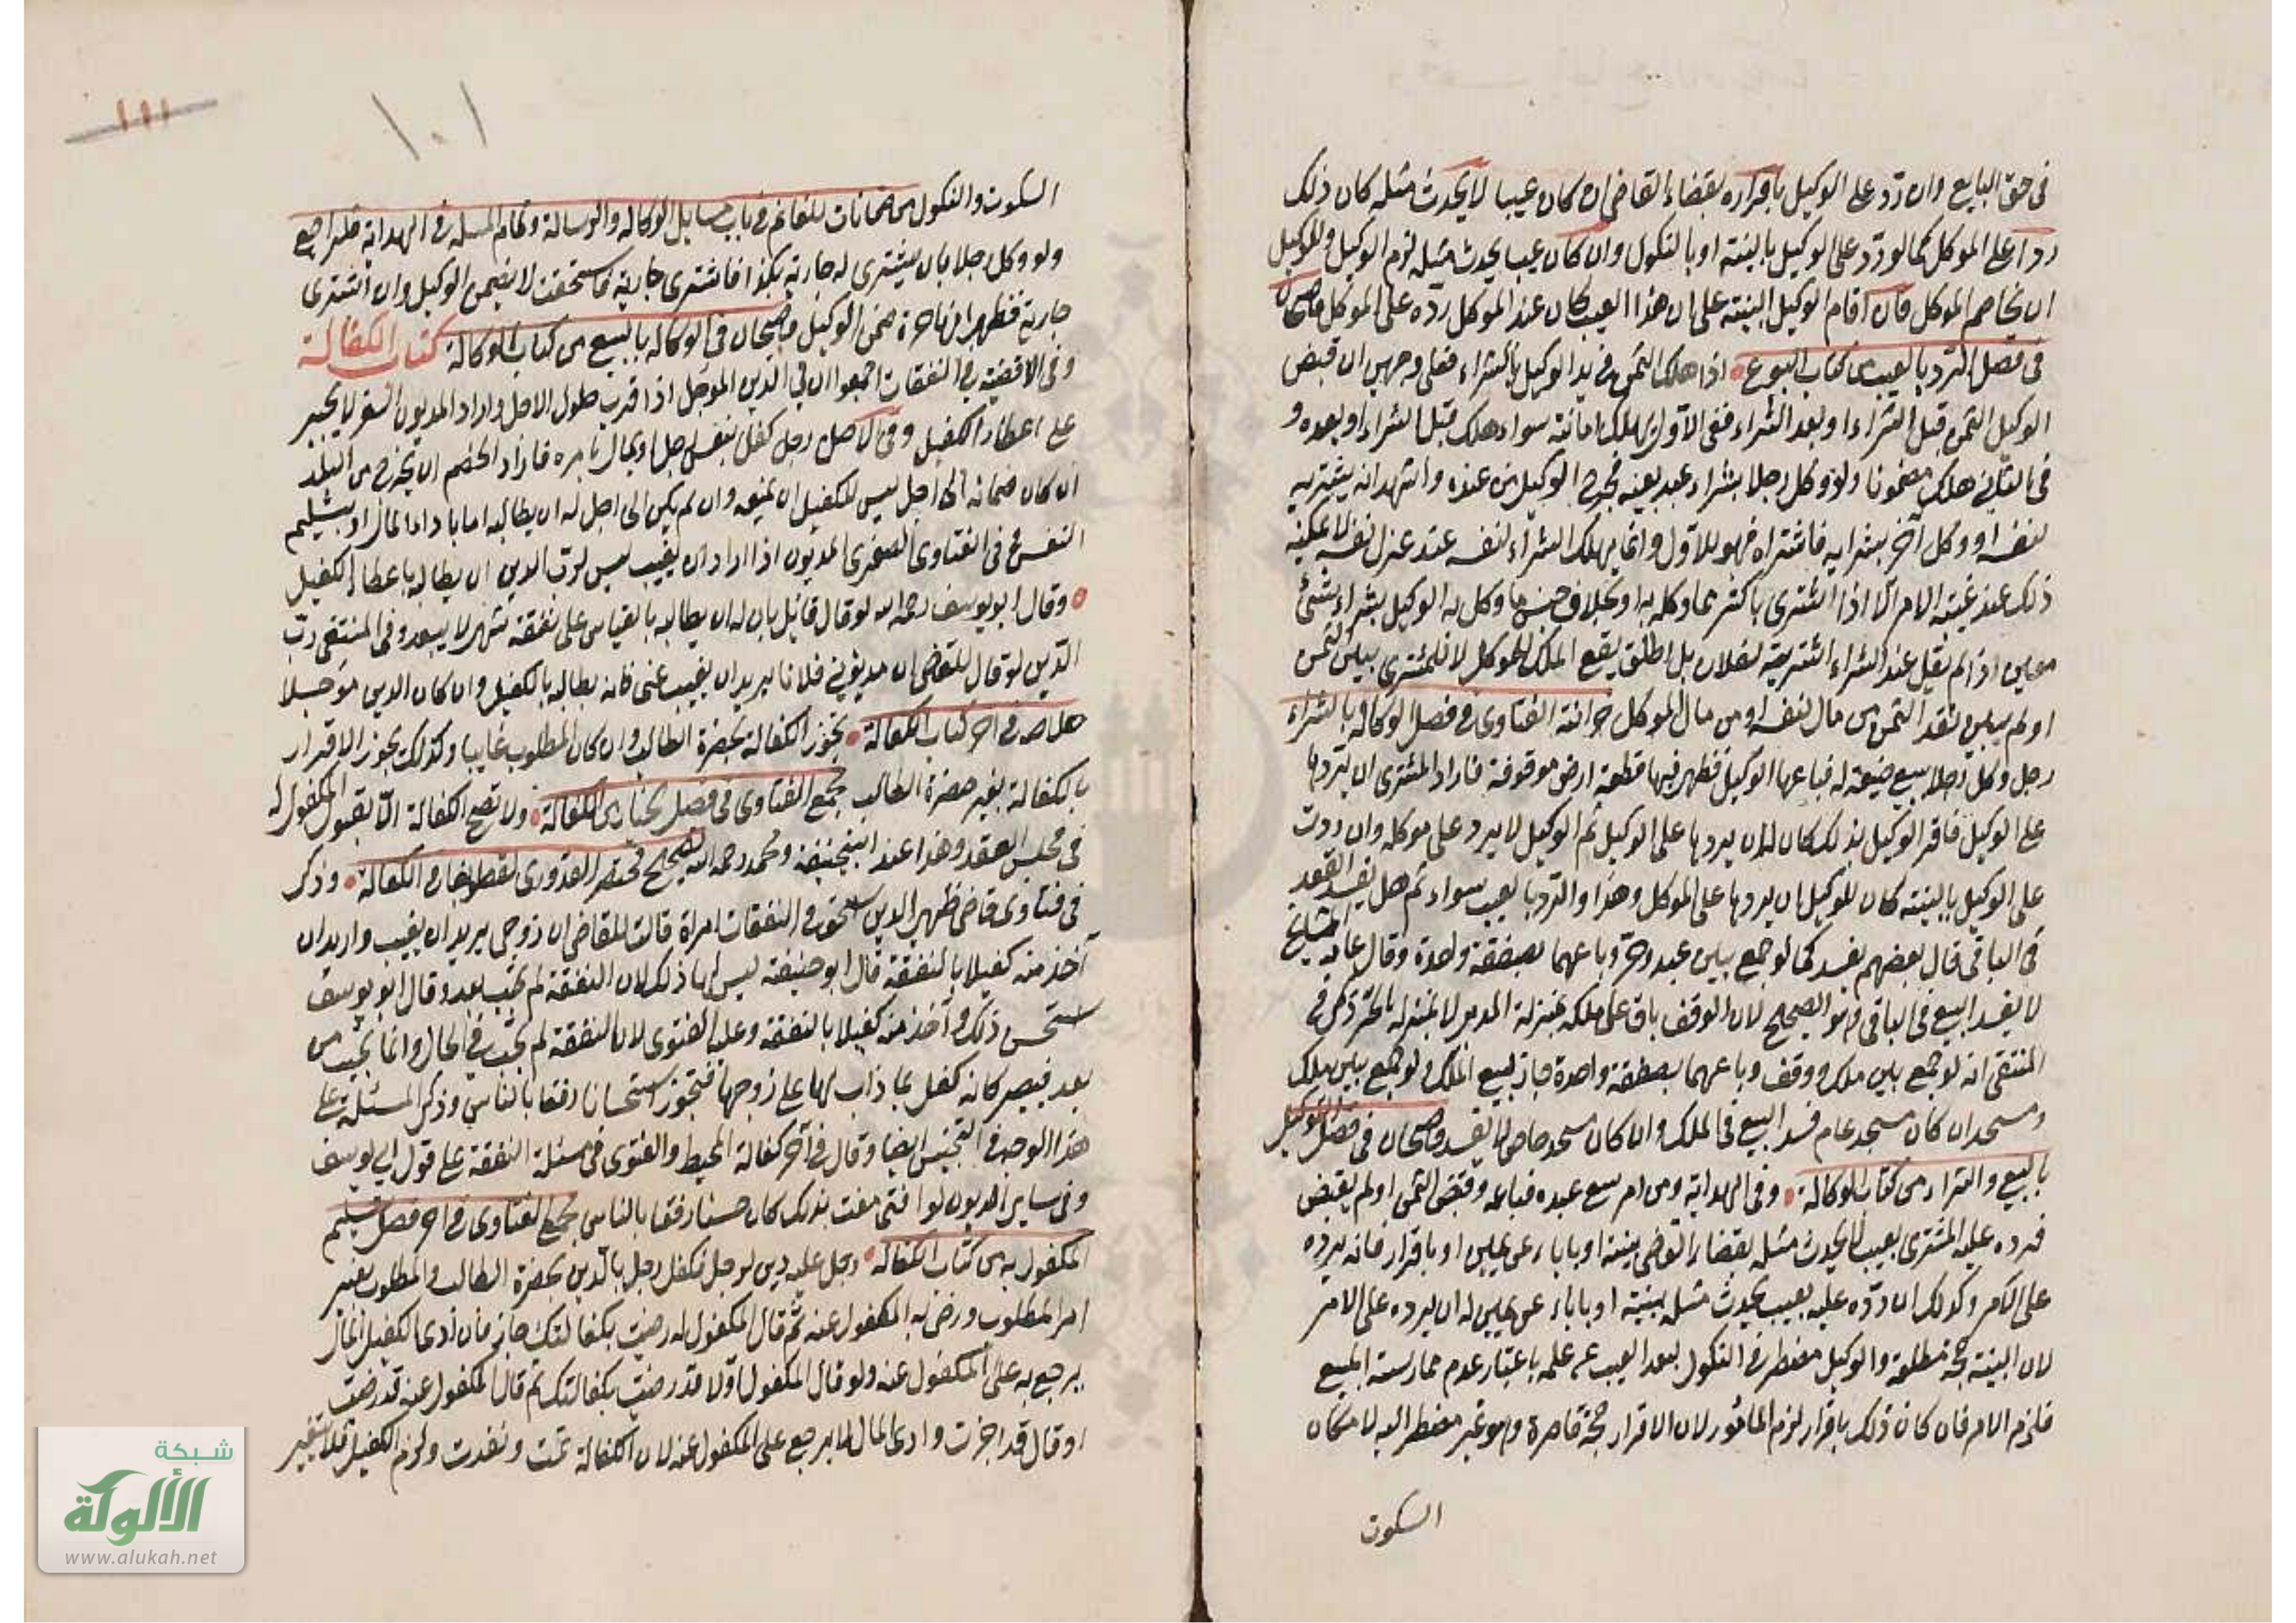 فى حق البايع وان رد على الوكيل باقراره بقضاء القاضى ان كان عيبا لا يحدث مثله كان ذلك
ردا على الموكل كما لو رد على الوكيل بالبينة او بالنكول وان كان عيبا يحدث مثله لزم الوكيل وللوكيل
ان يخاصم الموكل فان اقام الوكيل البينة على ان هذا العيب كان عند الموكل رده على الموكل قاضيخان
فى فصل الرد بالعيب من كتاب البيوع اذا هلك الثمن فى يد الوكيل بالشراء فعلى وجهين ان قبض
الوكيل الثمن قبل الشراء او بعد الشراء ففى الاول يهلك امانة سواء هلك قبل الشراء او بعده و
فى الثانى هلك مضمونا ولو وكل رجلا بشراء عبد بعينه فخرج الوكيل من عنده واشهد انه يشتريه
لنفسه او وكل آخر بشرايه فاشتراه فهو للاول وانما يملك الشراء لنفسه عند عزل نفسه لا يمكنه
ذلك عند غيبة الامر الا اذا اشترى باكثر مما وكله به او بخلاف جنس ما وكل به الوكيل بشراء شئ
معين اذا لم يقل عند الشراء اشتريته لفلان بل اطلق يقع الملك للموكل لا للمشترى بين الثمن
او لم يبين نقد الثمن من مال نفسه او من مال الموكل خزانة الفتاوى فى فصل الوكالة بالشراء
رجل وكل رجلا ببيع ضيعة له فباعها الوكيل فظهر فيها قطعة ارض موقوفة فاراد المشترى ان يردها
على الوكيل فاقر الوكيل بذلك كان له ان يردها على الوكيل ثم الوكيل لا يرد على موكله وان ردت
على الوكيل بالبينة كان للوكيل ان يردها على الموكل وهذا والرد بالعيب سواء ثم هل يفسد العقد
فى الباقى قال بعضهم يفسد كما لو جمع بين عبد وحر وباعهما بصفقة واحدة وقال عامة المشايخ
لا يفسد البيع فى الباقى وهو الصحيح لان الوقف باق على ملكه بمنزلة المدبر لا بمنزلة الحر ذكر فى
المنتقى انه لو جمع بين ملك ووقف وباعهما بصفقة واحدة جاز بيع الملك ولو جمع بين ملك
ومسجد ان كان مسجد عام فسد البيع فى الملك وان كان مسجد خاص لا يفسد قاضيخان فى فصل التوكيل
بالبيع والشراء من كتاب الوكالة وفى الهداية ومن امر ببيع عبده فباعه وقبض الثمن او لم يقبض
فرده عليه المشترى بعيب لا يحدث مثله بقضاء القاضى ببينة او باباء عن يمين او باقرار فانه يرده
على الامر وكذلك ان رده عليه بعيب يحدث مثله ببينة او باباء عن يمين له ان يرده على الامر
لان البينة حجة مطلقة والوكيل مضطر فى النكول لبعد العيب عن علمه باعتبار عدم ممارسة المبيع
فلزم الامر فان كان ذلك باقرار لزم المأمور لان الاقرار حجة قاصرة وهو غير مضطر اليه لامكان
السكوت
١٠١
١١١
السكوت والنكول من ضمانات الغانم فى باب مسايل الوكالة والرسالة وتمام المسئلة فى الهداية فليراجع
ولو وكل رجلا بان يشترى له جارية بكذا فاشترى جارية فاستحقت لا يضمن الوكيل وان اشترى
جارية فظهر انها حرة ضمن الوكيل قاضيخان فى الوكالة بالبيع من كتاب الوكالة كتاب الكفالة
وفى الاقضية فى النفقات اجمعوا ان فى الدين المؤجل اذا قرب حلول الاجل واراد المديون السفر لا يجبر
على اعطاء الكفيل وفى الاصل رجل كفل بنفس رجل او بمال بامره فاراد الخصم ان يخرج من البلد
ان كان ضمانه الى اجل ليس للكفيل ان يمنعه وان لم يكن الى اجل له ان يطالبه اما باداء المال او بتسليم
النفس وفى الفتاوى الصغرى المديون اذا اراد ان يغيب ليس لرب الدين ان يطالبه باعطاء الكفيل
وقال ابو يوسف رحمه الله لو قال قائل بان له ان يطالبه بالقياس على نفقة شهر لا يبعد وفى المنتقى رب
الدين لو قال للقاضى ان مديونى فلانا يريد ان يغيب عنى فانه يطالبه بالكفيل وان كان الدين مؤجلا
خلاصة فى اخر كتاب الكفالة تجوز الكفالة بحضرة الطالب وان كان المطلوب غايبا وكذلك يجوز الاقرار
بالكفالة بغير حضرة الطالب مجمع الفتاوى فى فصل الكفالة ولا تصح الكفالة الا بقبول المكفول له
فى مجلس العقد وهذا عند ابى حنيفة ومحمد رحمه الله تصحيح مختصر القدورى لقطلوبغا فى الكفالة وذكر
فى فتاوى قاضى ظهير الدين اسحق فى النفقات امراة قالت للقاضى ان زوجى يريد ان يغيب واريد ان
آخذ منه كفيلا بالنفقة قال ابو حنيفة ليس لها ذلك لان النفقة لم تجب بعد وقال ابو يوسف
استحسن ذلك وآخذ منه كفيلا بالنفقة وعليه الفتوى لان النفقة لم تجب فى الحال وانما تجب من
بعد فيصير كانه كفل بما ذاب لها على زوجها فتجوز استحسانا رفقا بالناس وذكر المسئلة على
هذا الوجه فى التجنيس ايضا وقال فى آخر كفالة المحيط والفتوى فى مسئلة النفقة على قول ابى يوسف
وفى ساير الديون لو افتى مفت بذلك كان حسنا رفقا بالناس مجمع الفتاوى فى اخر فصل تسليم
المكفول به من كتاب الكفالة رجل عليه دين لرجل فكفل رجل بالدين بحضرة الطالب والمطلوب بغير
امر المطلوب ورضى به المكفول عنه ثم قال المكفول له رضيت بكفالتك جاز فان ادى الكفيل المال
يرجع به على المكفول عنه ولو قال المكفول له اولا قد رضيت بكفالتك ثم قال المكفول عنه قد رضيت
او قال قد اجزت وادى المال لا يرجع على المكفول عنه لان الكفالة تمت ونفذت ولزم الكفيل فلا تتغير
شبكة
الألوكة
www.alukah.net